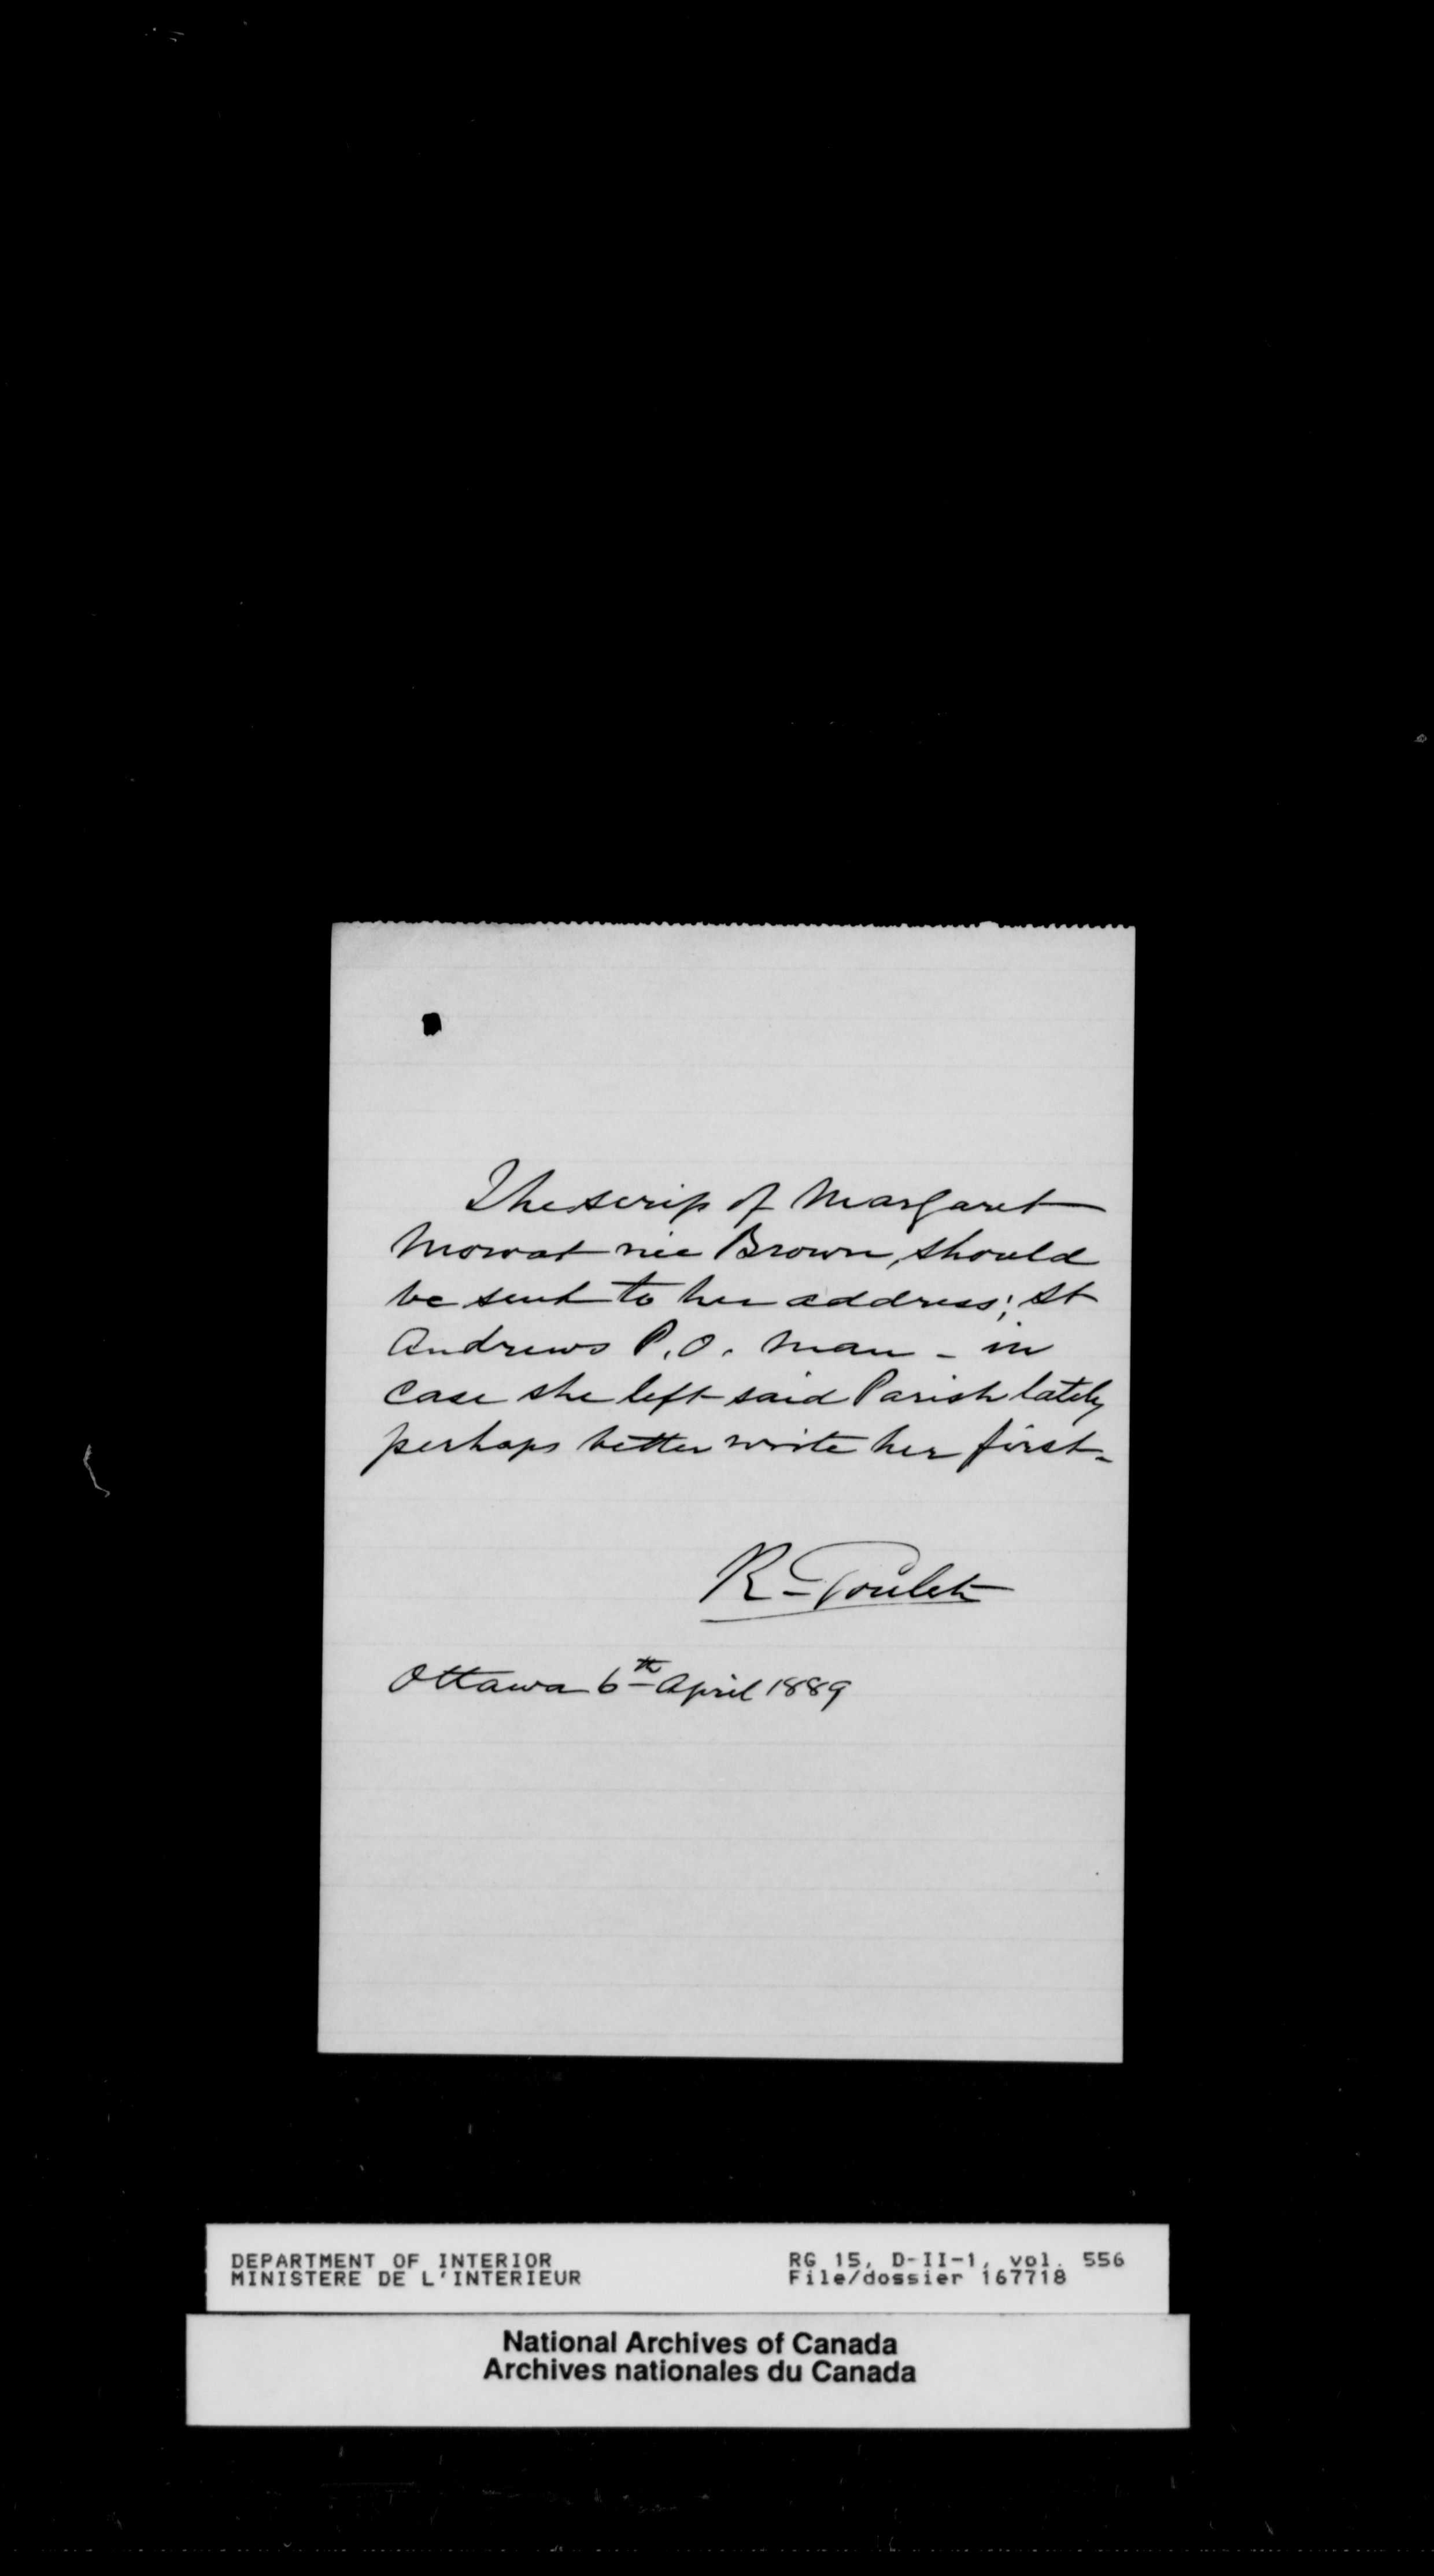 The scrip of Margaret
Mowat née Brown, should
be sent to her address; St
Andrews P.O. Man - in
case she left said Parish lately
perhaps better write her first -
R - Goulet
Ottawa 6th April 1889
DEPARTMENT OF INTERIOR
MINISTERE DE L'INTERIEUR
RG 15, D-II-1, vol. 556
File/dossier 167718
National Archives of Canada
Archives nationales du Canada